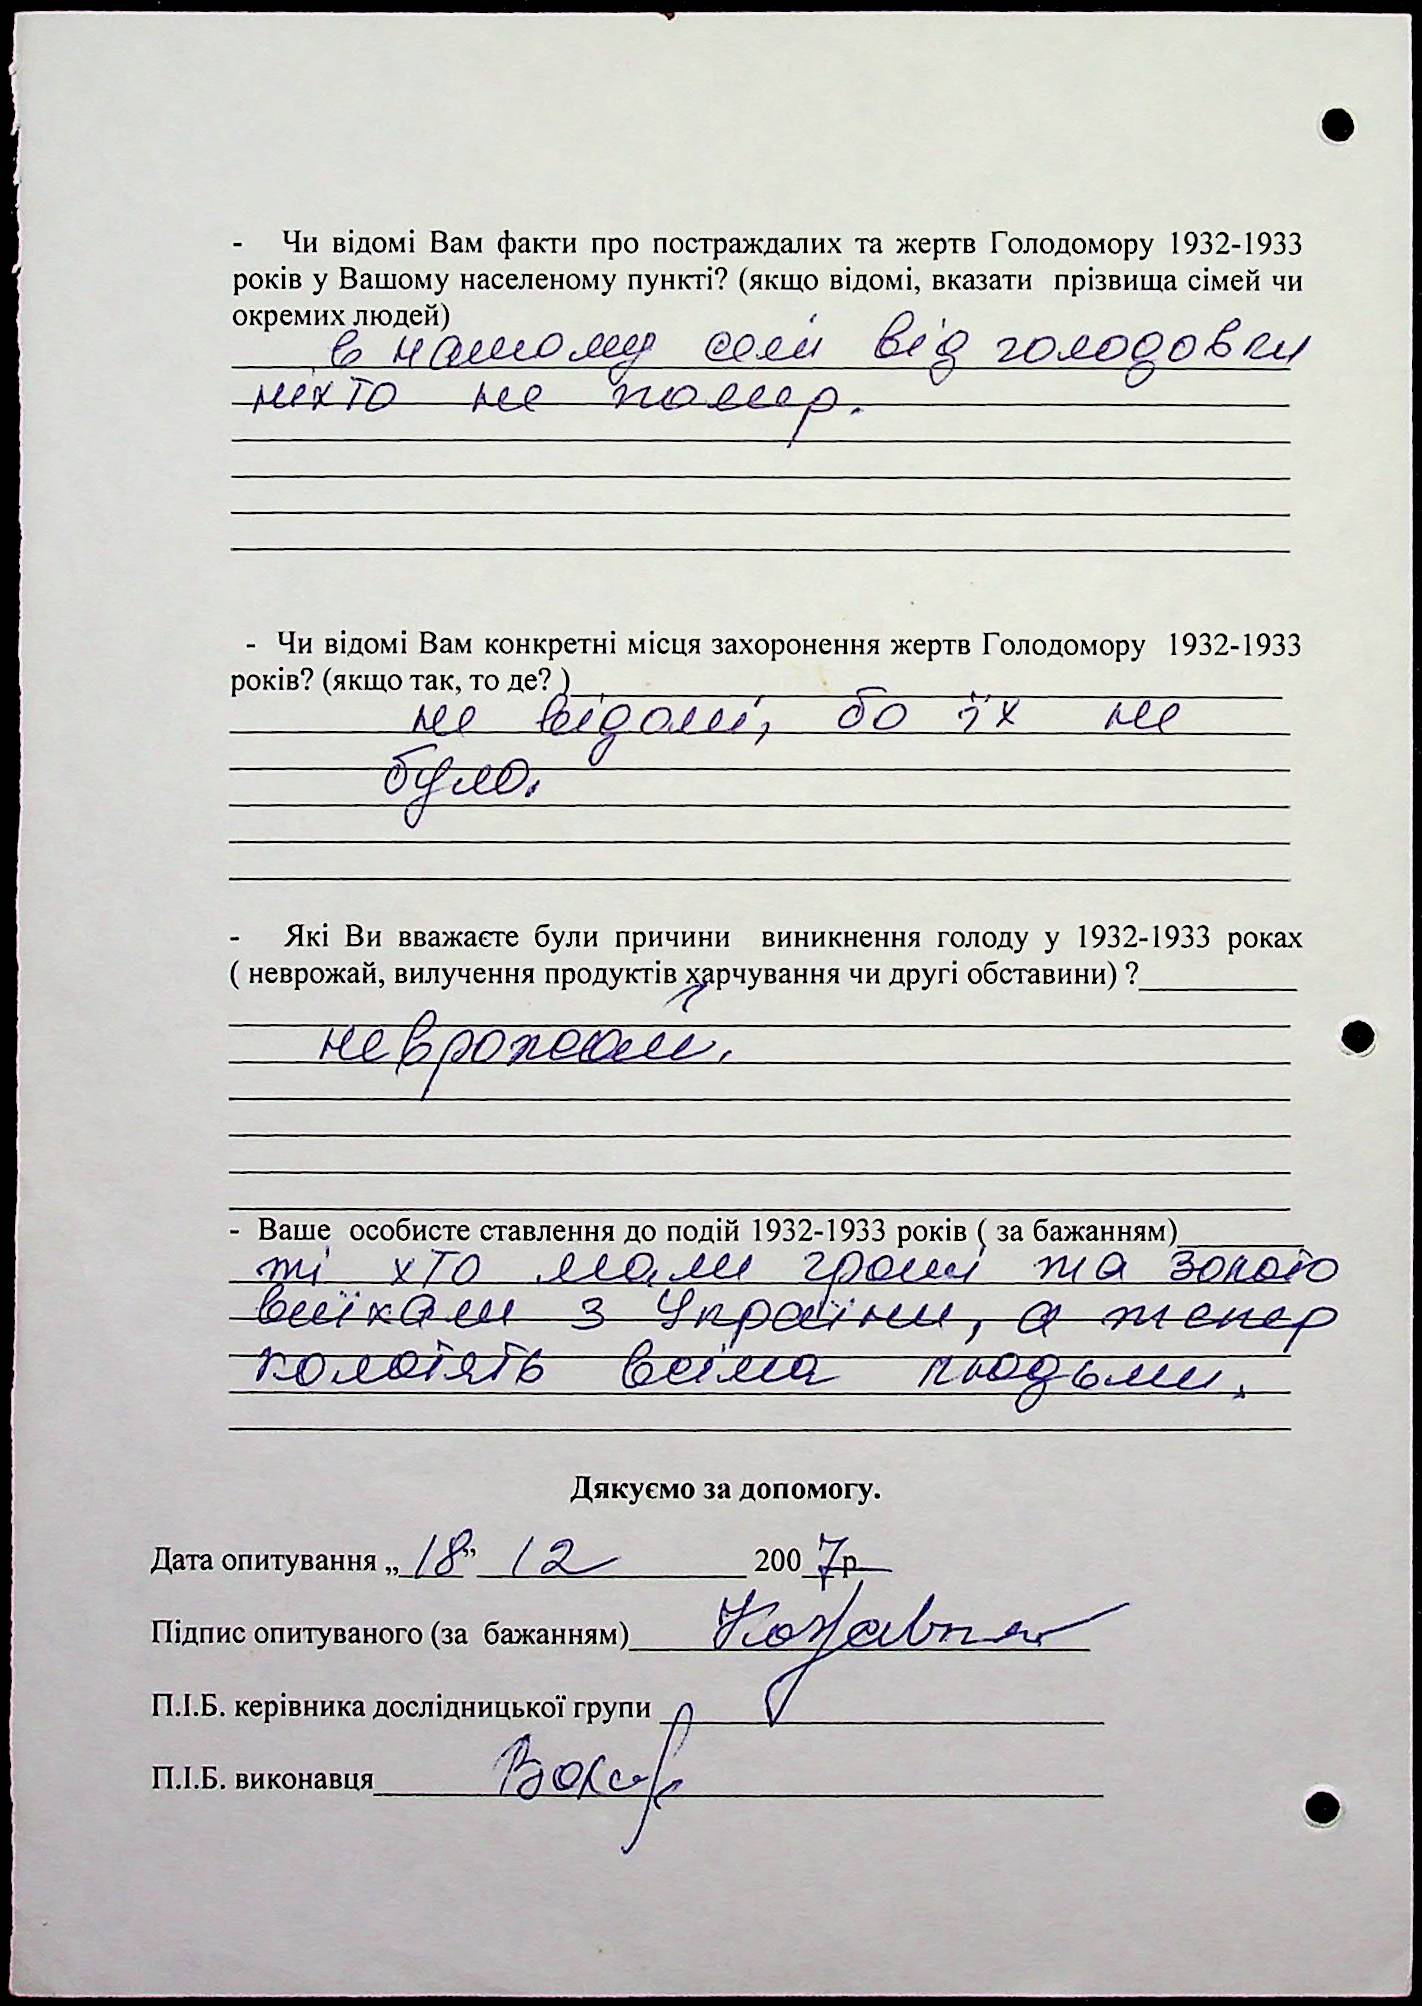 - Чи відомі Вам факти про постраждалих та жертв Голодомору 1932-1933
років у Вашому населеному пункті? (якщо відомі, вказати прізвища сімей чи
окремих людей)
в нашому селі від голодовки
ніхто не помер.
- Чи відомі Вам конкретні місця захоронення жертв Голодомору 1932-1933
років? (якщо так, то де? )
не відомі, бо їх не
було.
- Які Ви вважаєте були причини виникнення голоду у 1932-1933 роках
( неврожай, вилучення продуктів харчування чи другі обставини) ?
неврожаї.
- Ваше особисте ставлення до подій 1932-1933 років ( за бажанням)
ті хто мали гроші та золото
виїхали з України, а тепер
колотять всіма людьми.
Дякуємо за допомогу.
Дата опитування „18” 12 2007р
Підпис опитуваного (за бажанням)
П.І.Б. керівника дослідницької групи
П.І.Б. виконавця